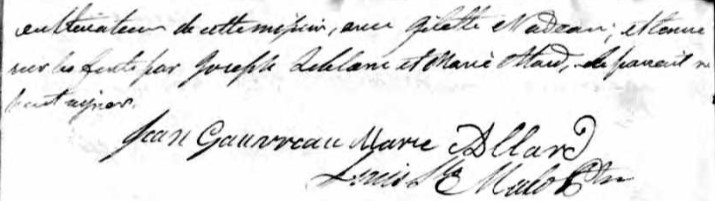 cultivateur de cette mission, avec Gilette Nadeau; et tenue
sur les fonts par Joseph Leblanc et Marie Allard, le parrain n
Jean Gauvreau Marie Allard
Louis Ste Malo Ptre